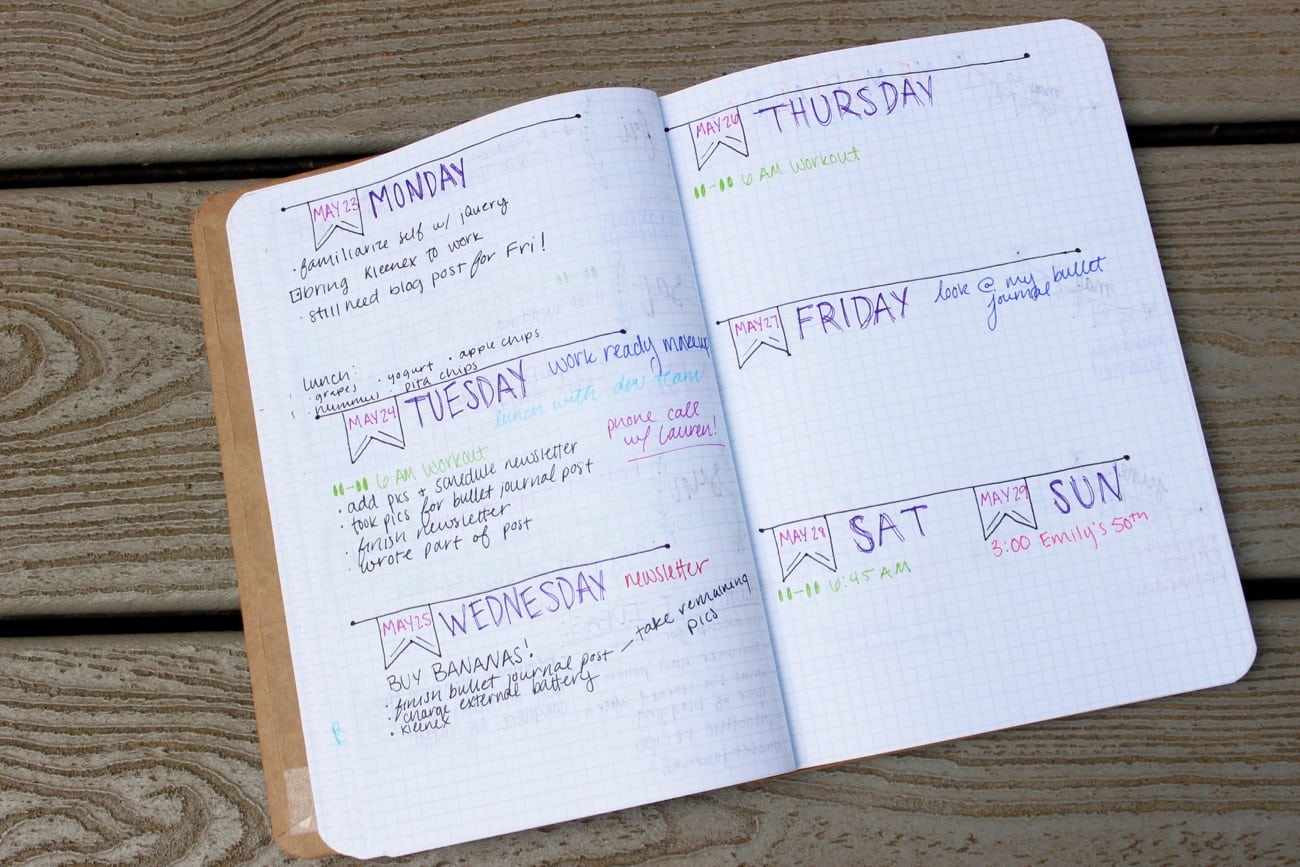 MAY 23 MONDAY
· familiarize self w/ jquery
bring Kleenex to work
· still need blog post for Fri!
lunch:
· grapes · yogurt · apple chips
· hummus pita chips
MAY 24 TUESDAY work ready makeup
lunch with dev team
phone call
w/ Lauren!
6 AM Workout
· add pics + schedule newsletter
· took pics for bullet journal post
· finish newsletter
· wrote part of post
MAY 25 WEDNESDAY newsletter
BUY BANANAS!
· finish bullet journal post – take remaining
pics
· charge external battery
· kleenex
MAY 26 THURSDAY
6 AM Workout
MAY 27 FRIDAY look @ my bullet
journal
MAY 28 SAT
6:45 AM
MAY 29 SUN
3:00 Emily's 50th